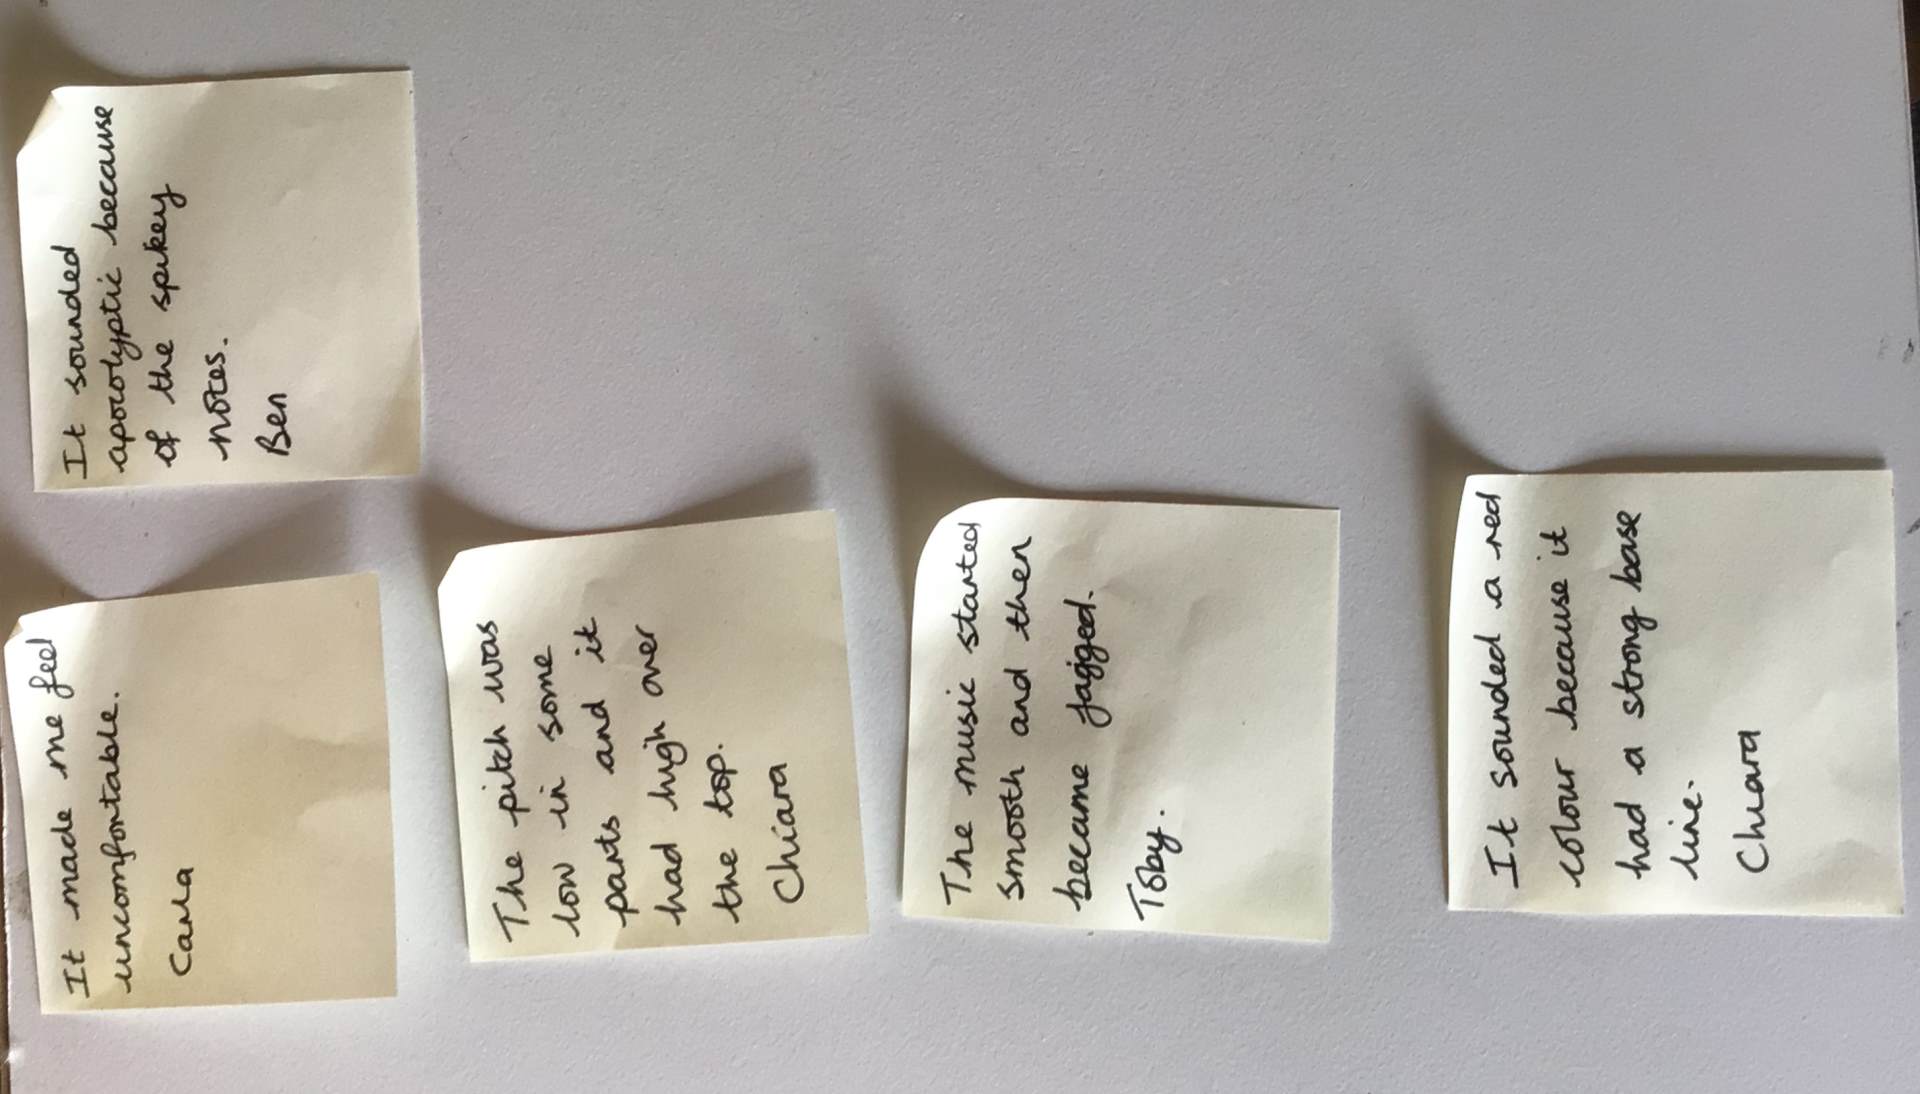 It made me feel
uncomfortable.
Carla
It sounded
apocolyptic because
of the spikey
notes.
Ben
The pitch was
low in some
parts and it
had high over
the top.
Chiara
The music started
smooth and then
became jagged.
Toby.
It sounded a red
colour because it
had a strong base
line.
Chiara